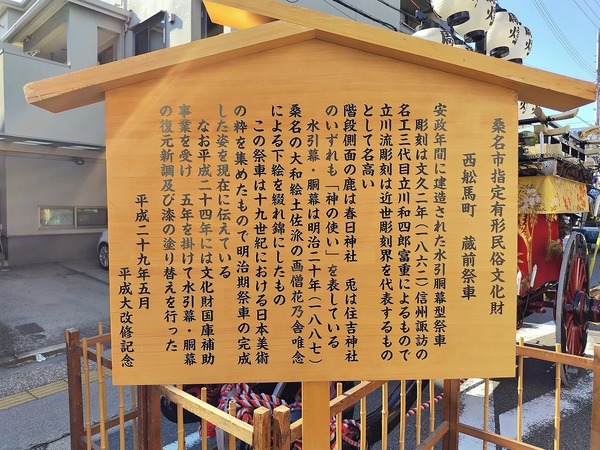 桑名市指定有形民俗文化財
西舩馬町 蔵前祭車
安政年間に建造された水引胴幕型祭車
彫刻は文久二年(一八六二)信州諏訪の
名工三代目立川和四郎富重によるもので
立川流彫刻は近世彫刻界を代表するもの
として名高い
階段側面の鹿は春日神社 兎は住吉神社
のいずれも「神の使い」を表している
水引幕・胴幕は明治二十年(一八八七)
桑名の大和絵土佐派の画僧花乃舎唯念
による下絵を綴れ錦にしたもの
この祭車は十九世紀における日本美術
の粋を集めたもので明治期祭車の完成
した姿を現在に伝えている
なお平成二十四年には文化財国庫補助
事業を受け 五年を掛けて水引幕・胴幕
の復元新調及び漆の塗り替えを行った
平成二十九年五月
平成大改修記念